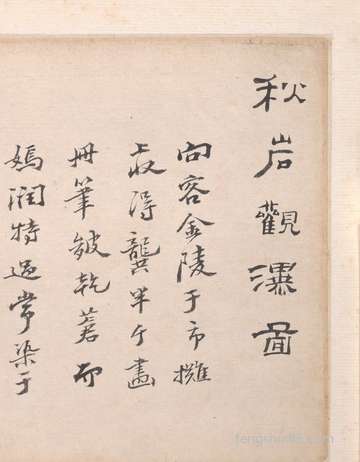 秋岩觀瀑圖
向客金陵于市攤
㝡得龔半千畫
冊筆皴乾着而
嫣潤特過常染于
fengshuiila.com